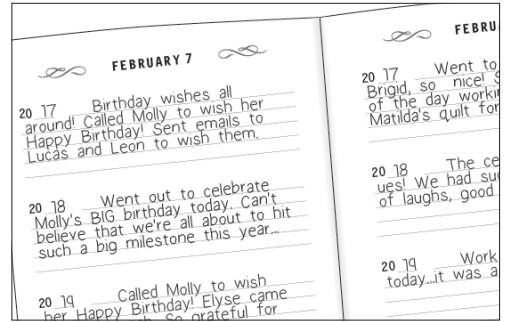 FEBRUARY 7
20 17 Birthday wishes all
around! Called Molly to wish her
Happy Birthday! Sent emails to
Lucas and Leon to wish them.
20 18 Went out to celebrate
Molly's BIG birthday today. Can't
believe that we're all about to hit
such a big milestone this year...
20 19 Called Molly to wish
her Happy Birthday! Elyse came
So grateful for
FEBRU
20 17 Went to
Brigid, so nice!
of the day workin
Matilda's quilt for
20 18 The ce
ues! We had su
of laughs, good
20 19 Work
today...it was a